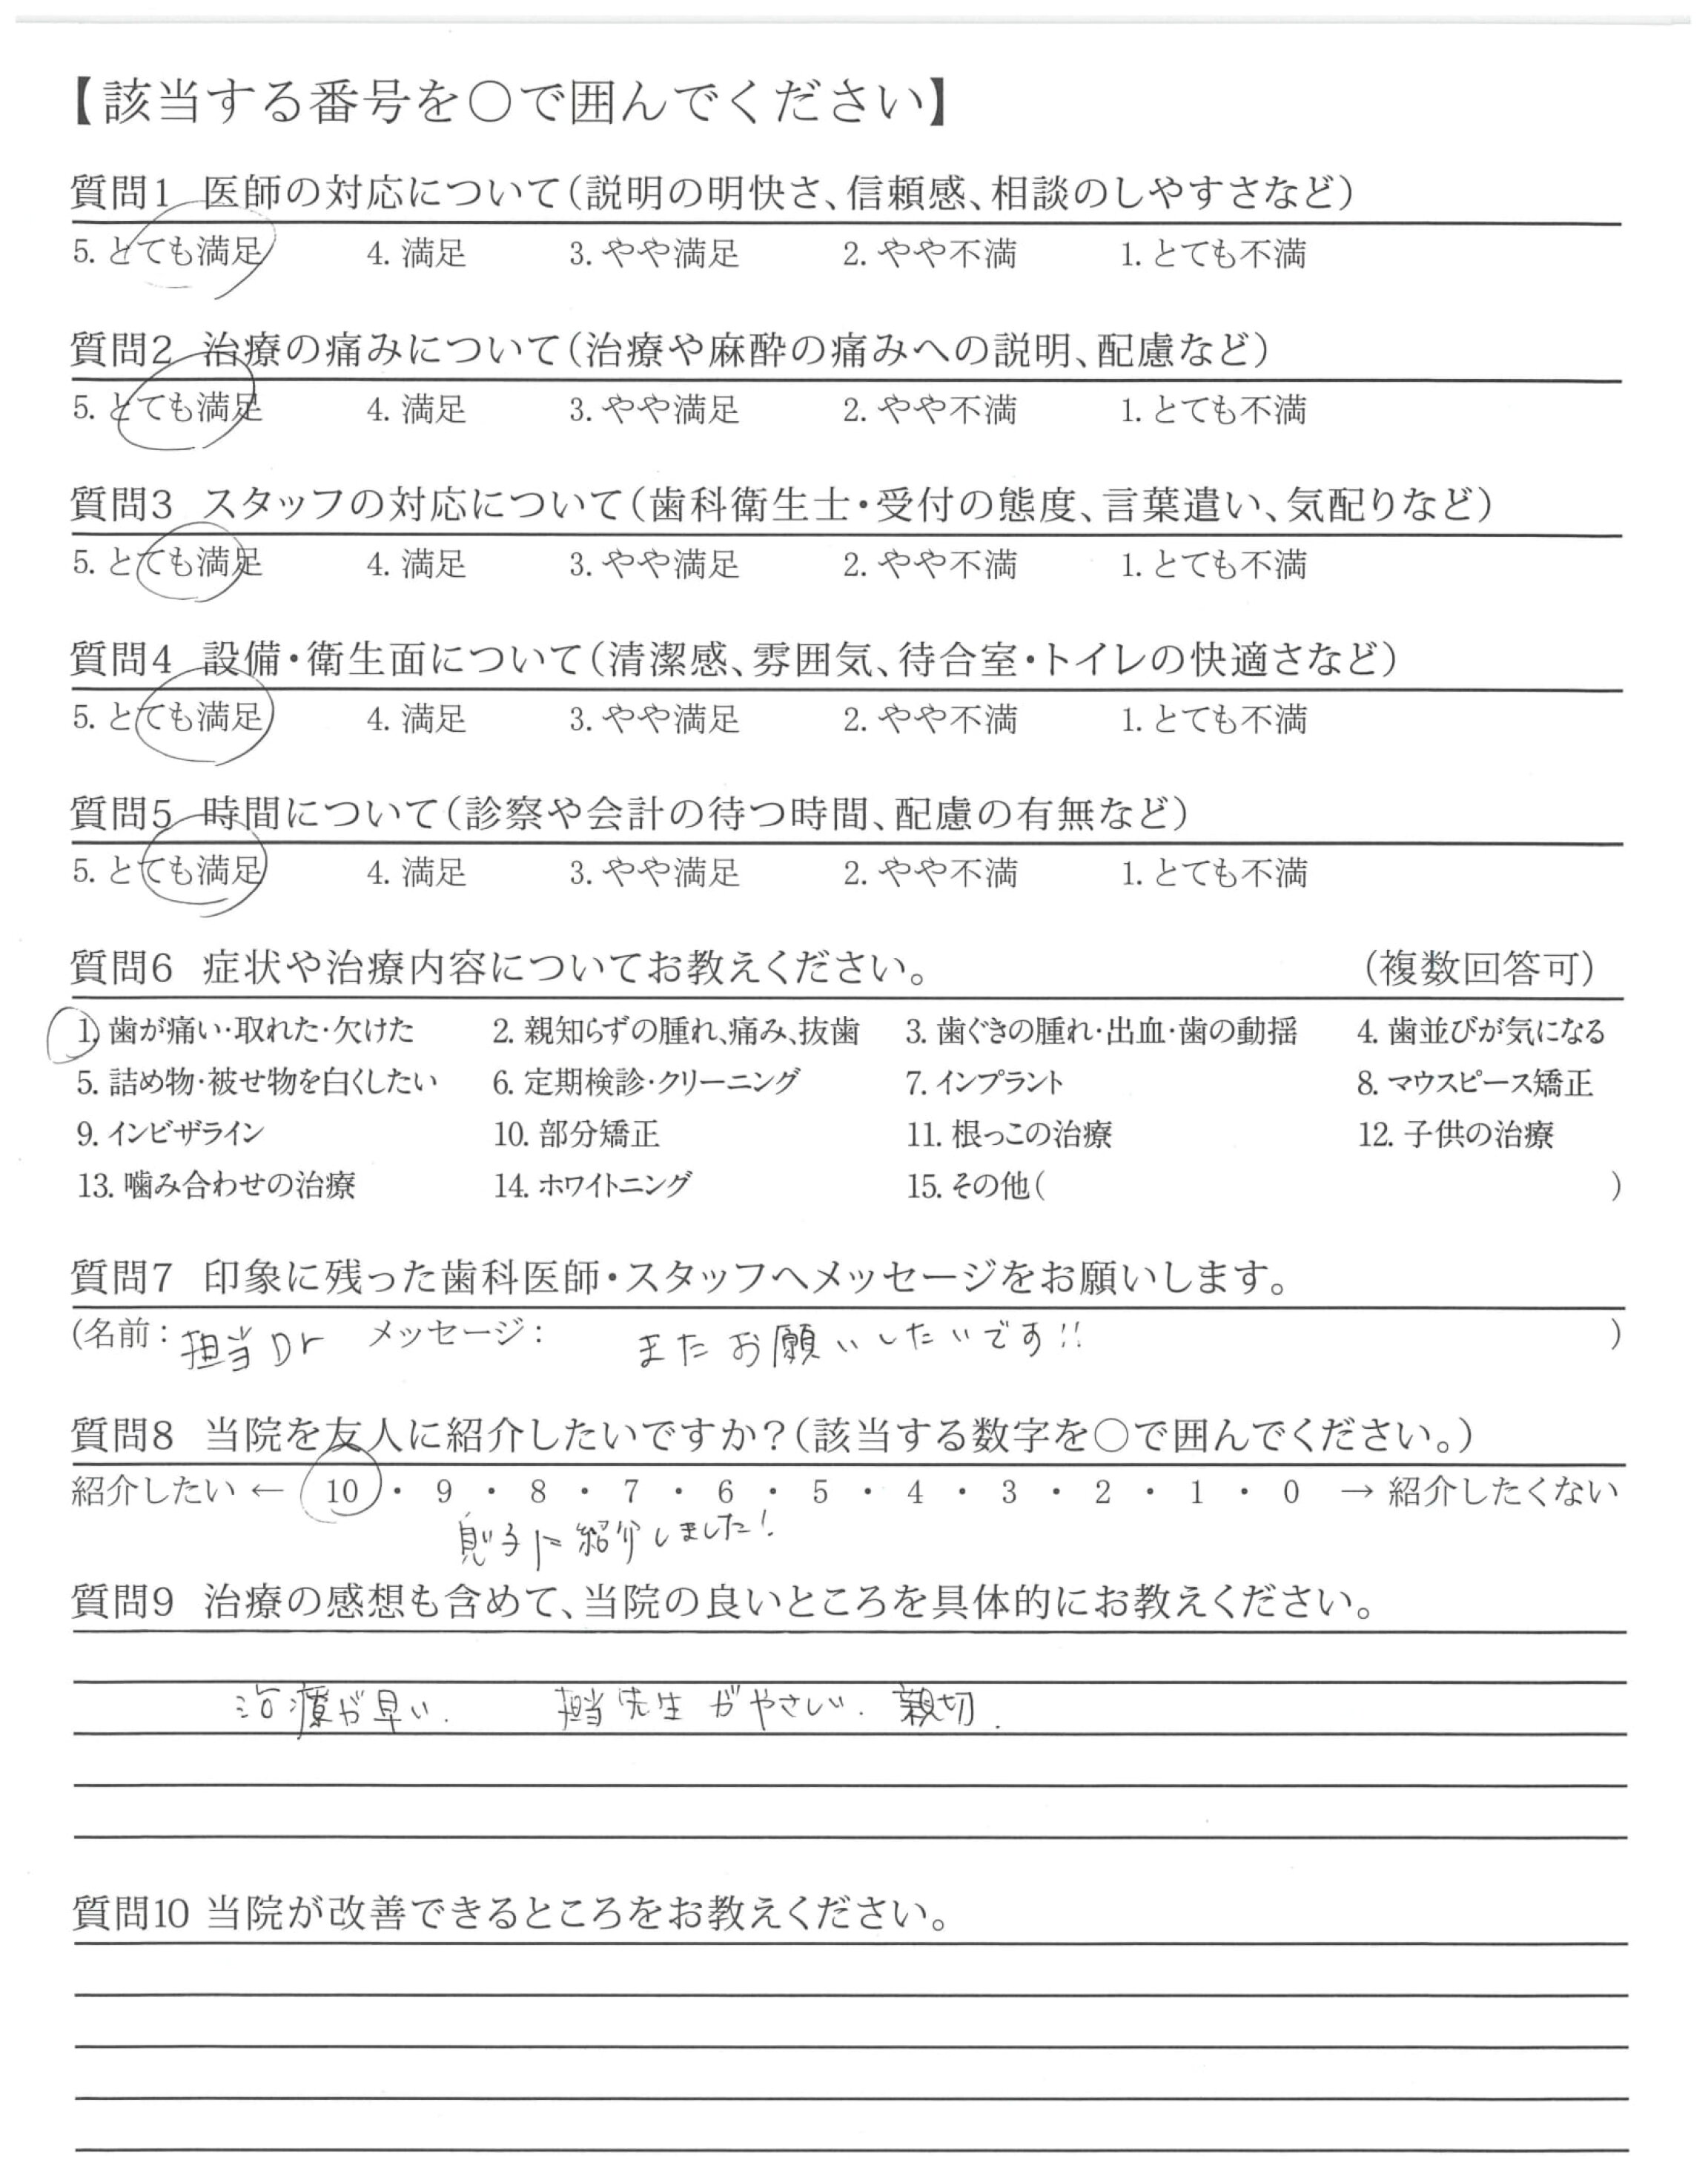 【該当する番号を○で囲んでください】
質問1 医師の対応について(説明の明快さ、信頼感、相談のしやすさなど)
5. とても満足 4. 満足 3. やや満足 2. やや不満 1. とても不満
質問2 治療の痛みについて(治療や麻酔の痛みへの説明、配慮など)
5. とても満足 4. 満足 3. やや満足 2. やや不満 1. とても不満
質問3 スタッフの対応について(歯科衛生士・受付の態度、言葉遣い、気配りなど)
5. とても満足 4. 満足 3. やや満足 2. やや不満 1. とても不満
質問4 設備・衛生面について(清潔感、雰囲気、待合室・トイレの快適さなど)
5. とても満足 4. 満足 3. やや満足 2. やや不満 1. とても不満
質問5 時間について(診察や会計の待つ時間、配慮の有無など)
5. とても満足 4. 満足 3. やや満足 2. やや不満 1. とても不満
質問6 症状や治療内容についてお教えください。 (複数回答可)
1. 歯が痛い・取れた・欠けた 2. 親知らずの腫れ、痛み、抜歯 3. 歯ぐきの腫れ・出血・歯の動揺 4. 歯並びが気になる
5. 詰め物・被せ物を白くしたい 6. 定期検診・クリーニング 7. インプラント 8. マウスピース矯正
9. インビザライン 10. 部分矯正 11. 根っこの治療 12. 子供の治療
13. 噛み合わせの治療 14. ホワイトニング 15. その他( )
質問7 印象に残った歯科医師・スタッフへメッセージをお願いします。
(名前: 担当Dr メッセージ: またお願いしたいです!! )
質問8 当院を友人に紹介したいですか?(該当する数字を○で囲んでください。)
紹介したい ← 10 ・ 9 ・ 8 ・ 7 ・ 6 ・ 5 ・ 4 ・ 3 ・ 2 ・ 1 ・ 0 → 紹介したくない
息子に紹介しました!
質問9 治療の感想も含めて、当院の良いところを具体的にお教えください。
治療が早い. 担当先生がやさしい. 親切.
質問10 当院が改善できるところをお教えください。